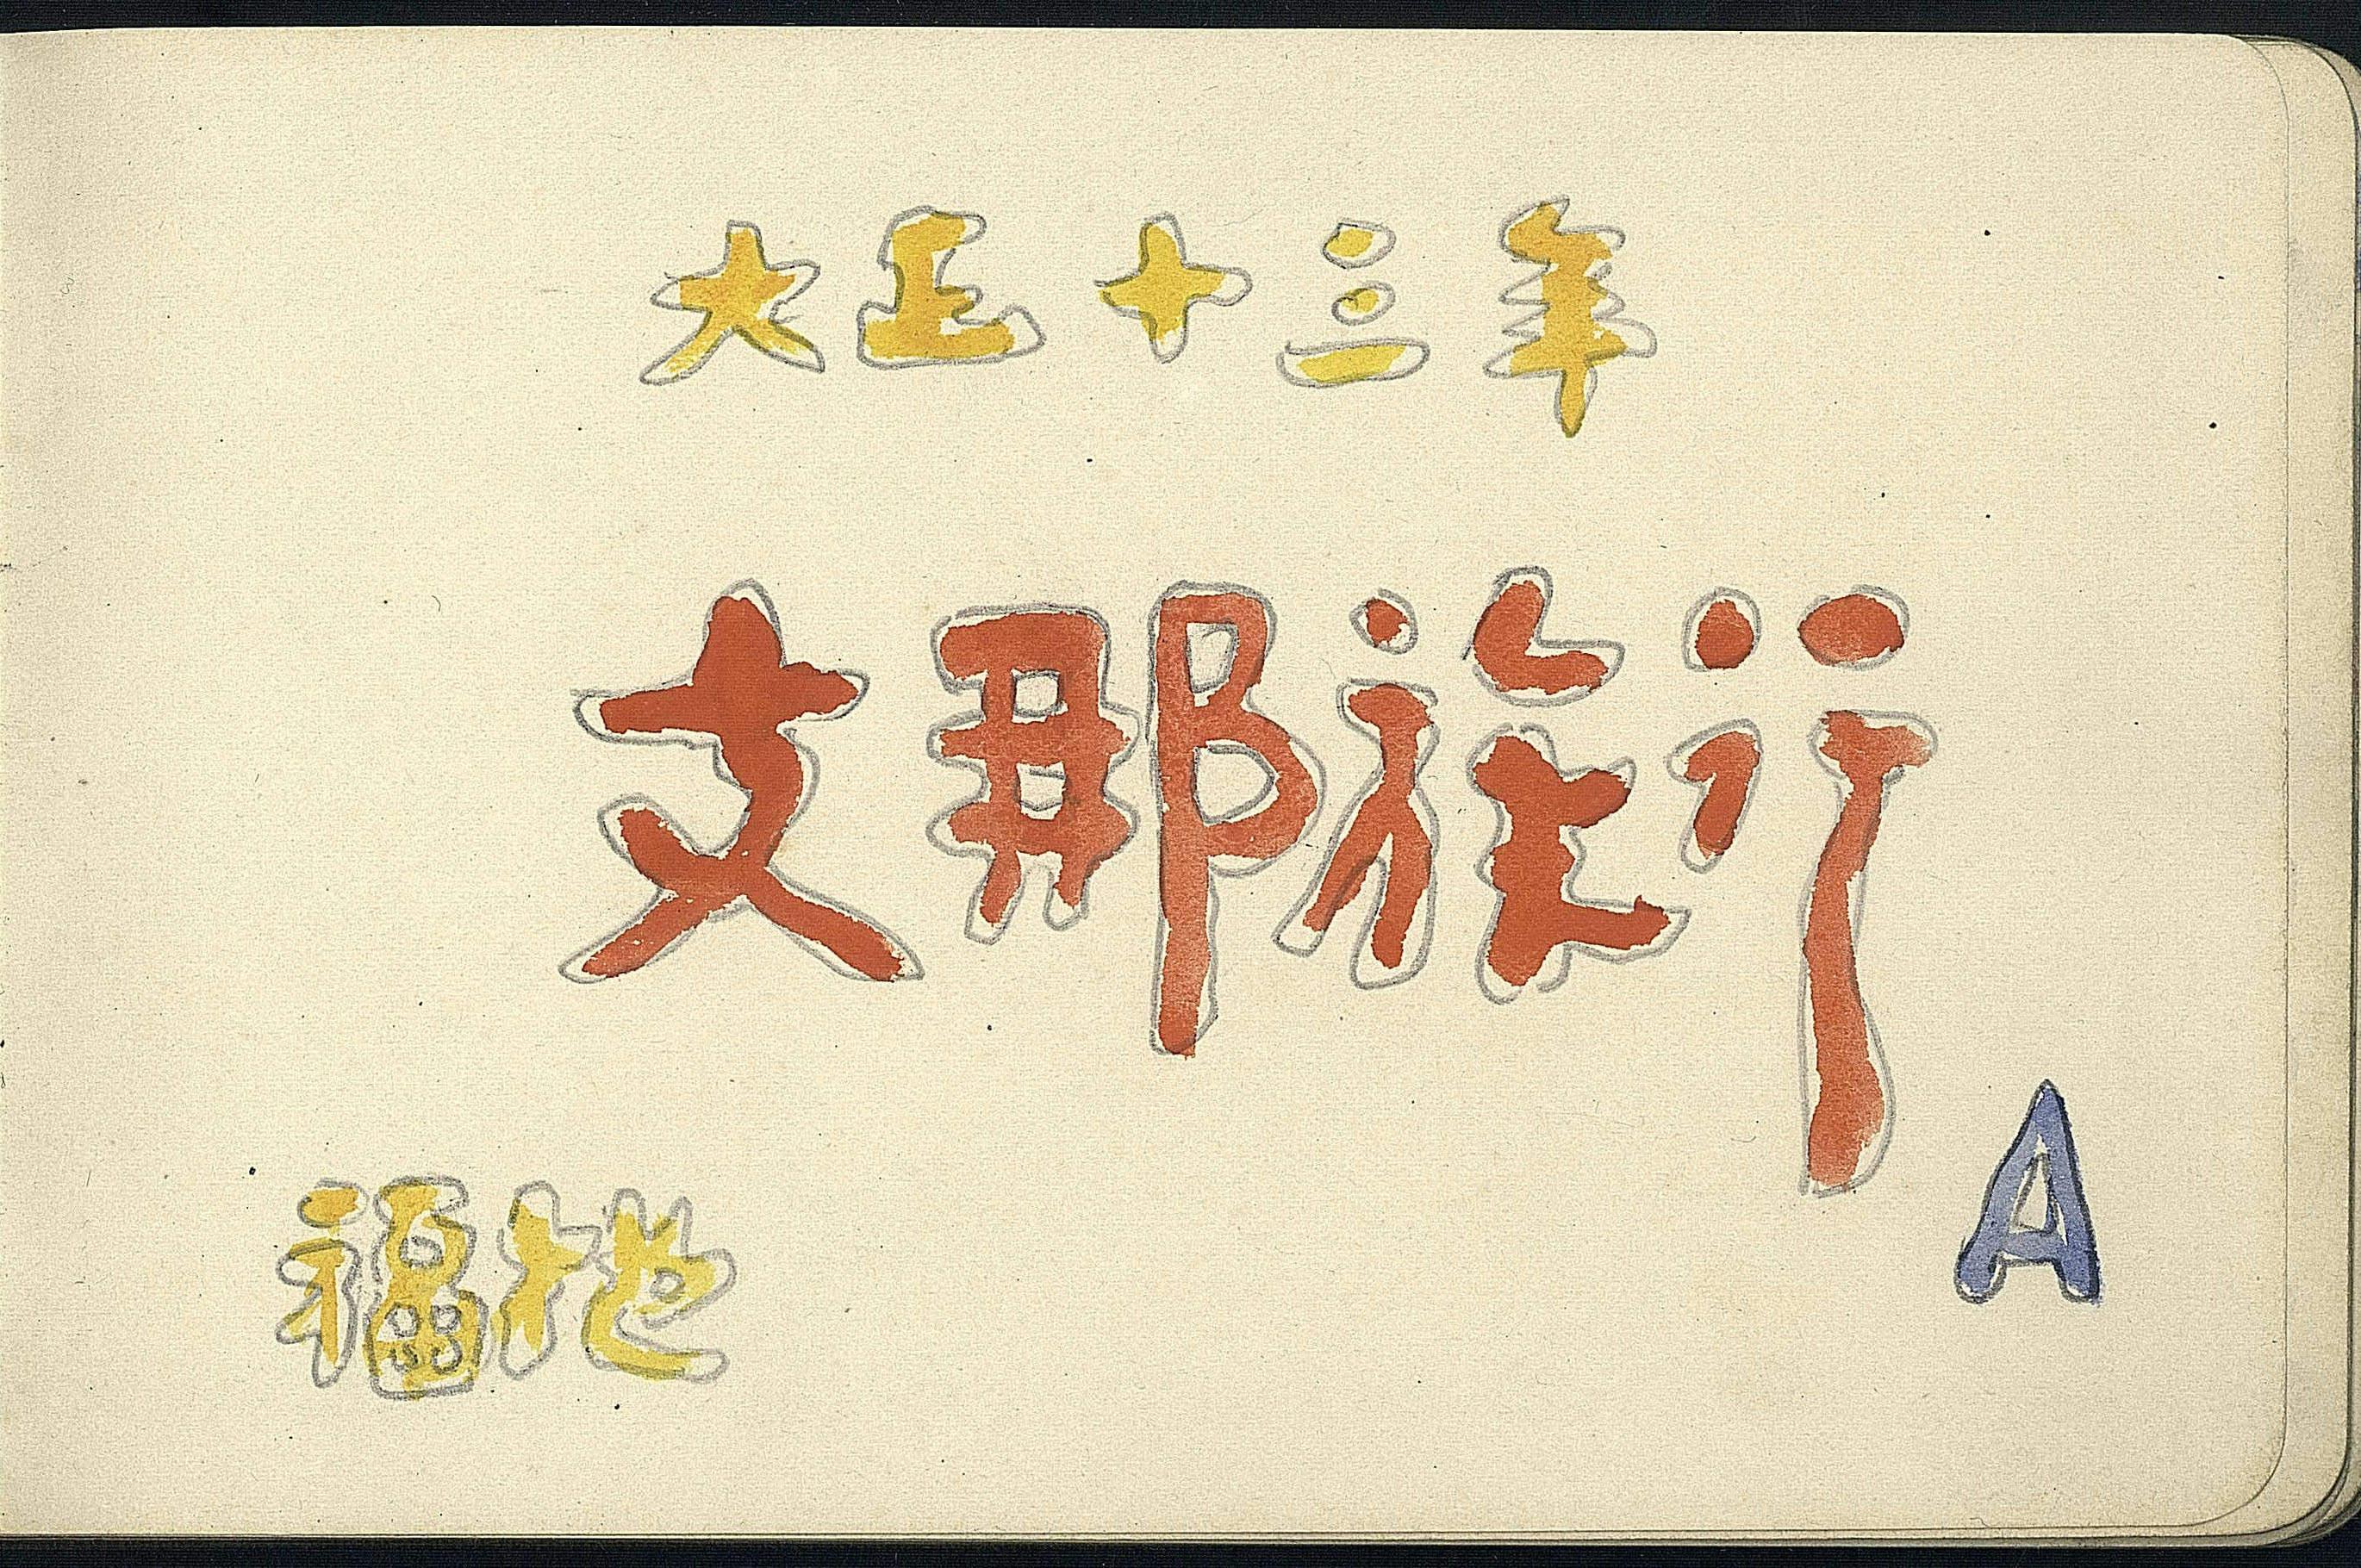 大正十三年
支那旅行
A
福地